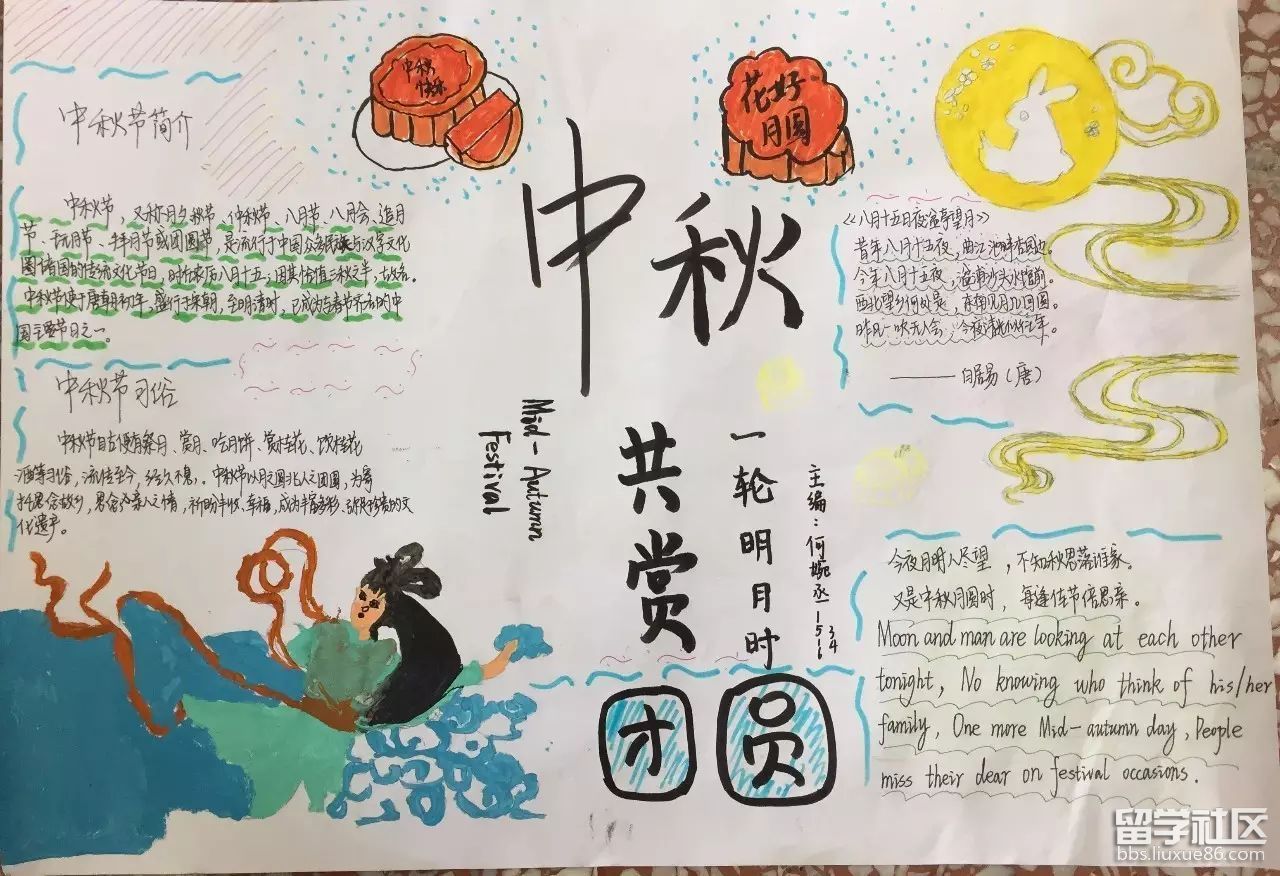 中秋节简介
中秋节，又称月夕、秋节、仲秋节、八月节、八月会、追月
节、玩月节、拜月节或团圆节，是流行于中国众多民族与汉字文化
圈诸国的传统文化节日，时在农历八月十五；因其恰值三秋之半，故名。
中秋节始于唐朝初年，盛行于宋朝，至明清时，已成为与春节齐名的中
国主要节日之一。
中秋节习俗
中秋节自古便有祭月、赏月、吃月饼、赏桂花、饮桂花
酒等习俗，流传至今，经久不息。中秋节以月之圆兆人之团圆，为寄
托思念故乡，思念亲人之情，祈盼丰收、幸福，成为丰富多彩、弥足珍贵的文
化遗产。
中秋
快乐
花好
月圆
中秋
Mid-Autumn
Festival
共赏
一轮明月时
主编：何婉丞
团员
《八月十五日夜湓亭望月》
昔年八月十五夜，曲江池畔杏园边。
今年八月十五夜，湓浦沙头水馆前。
西北望乡何处是，东南见月几回圆。
昨风一吹无人会，今夜清光似往年。
——白居易（唐）
今夜月明人尽望，不知秋思落谁家。
又是中秋月圆时，每逢佳节倍思亲。
Moon and man are looking at each other
tonight, No knowing who think of his/her
family, One more Mid-autumn day, People
miss their dear on festival occasions.
留学社区
bbs.liuxue86.com